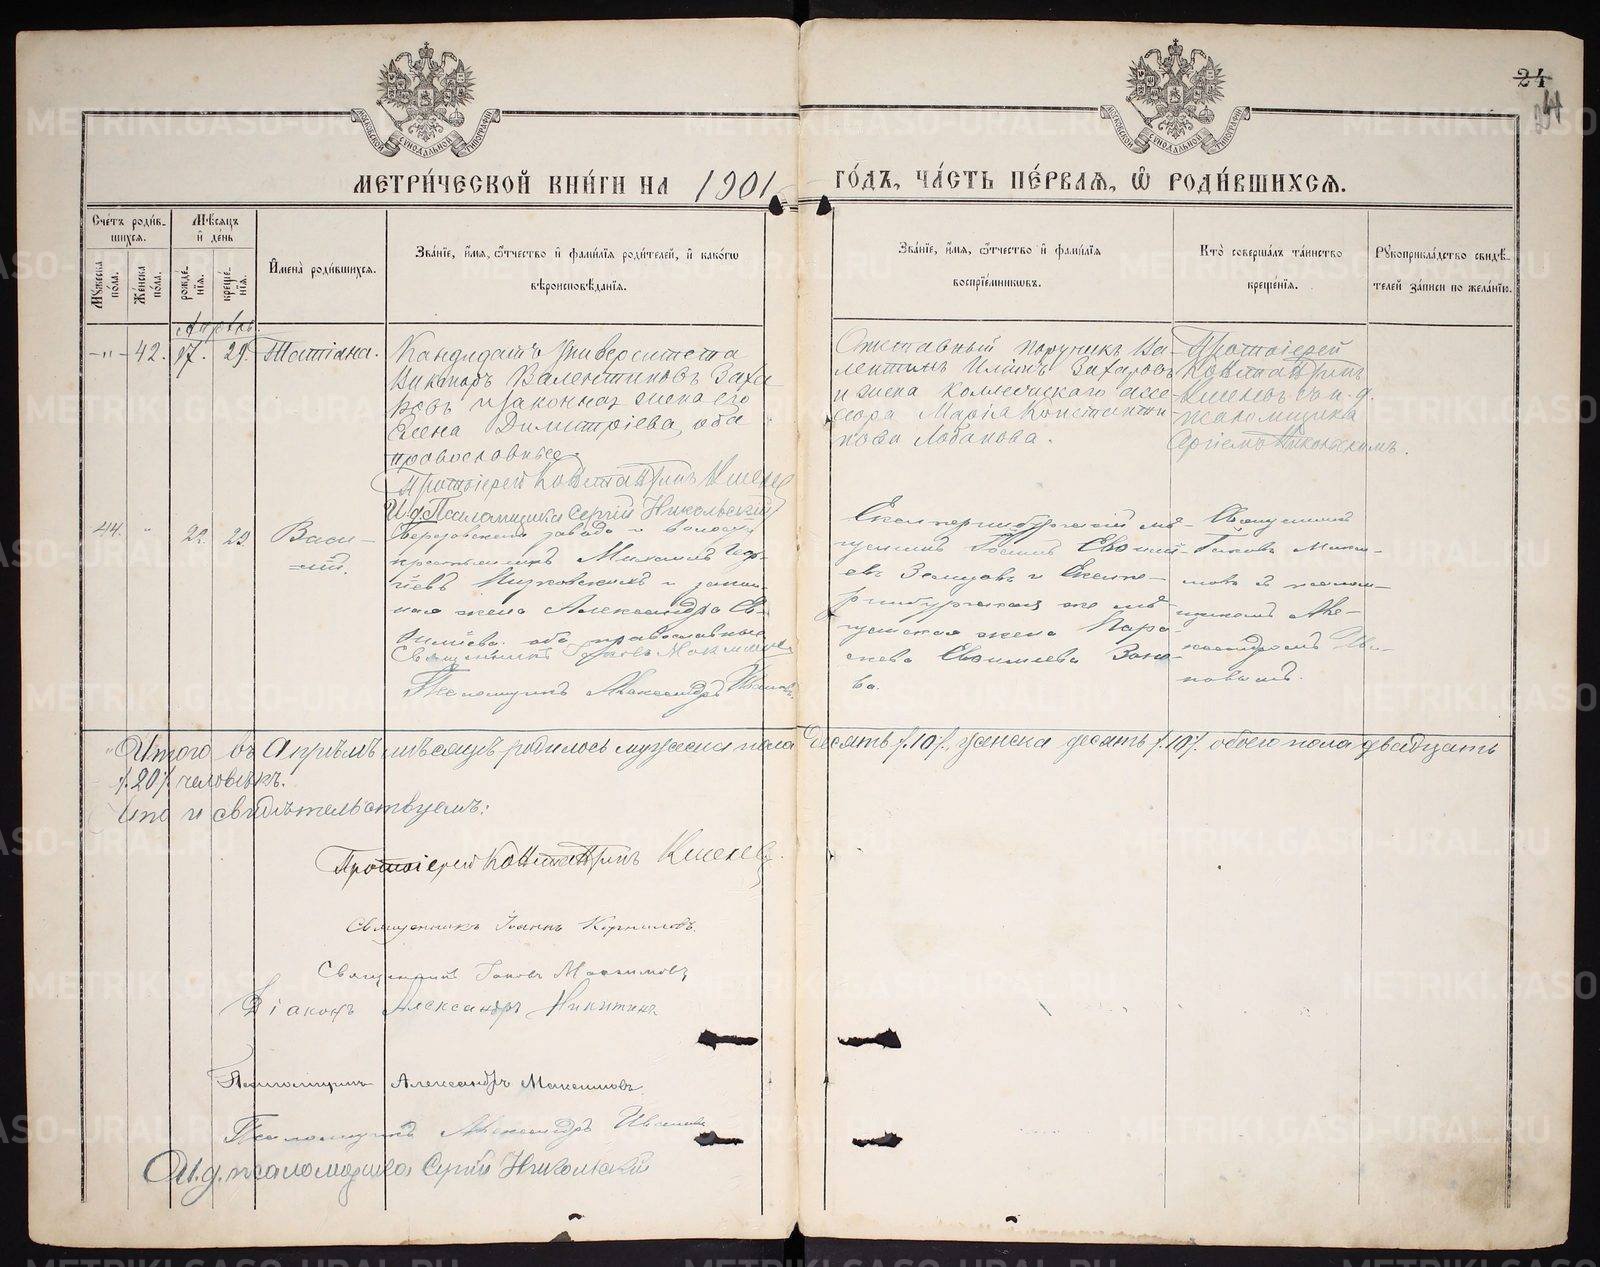 24
24
МОСКОВСКОЙ СѴНОДАЛЬНОЙ ТИПОГРАФІИ
МОСКОВСКОЙ СѴНОДАЛЬНОЙ ТИПОГРАФІИ
МЕТРИ́ЧЕСКОЙ КНИ́ГИ НА 1901 ГО́ДЪ, ЧА́СТЬ ПЕ́РВАѦ, Ѡ҆ РОДИ́ВШИХСѦ.
Сче́тъ роди́в-
шихсѧ.
Мꙋ́жеска по́ла.
Же́нска по́ла.
Мѣ́сѧцъ
и҆ де́нь
рожде́-
нїѧ.
креще́-
нїѧ.
И҆мена̀ роди́вшихсѧ.
Зва́нїе, и҆́мѧ, ѻ҆́тчество и҆ фами́лїѧ роди́телей, и҆ како́гѡ
вѣроисповѣ́данїѧ.
Зва́нїе, и҆́мѧ, ѻ҆́тчество и҆ фами́лїѧ
воспрїе́мникѡвъ.
Кто̀ соверша́лъ та́инство
креще́нїѧ.
Рꙋкоприкла́дство свидѣ́-
телей за́писи по жела́нїю.
Апрѣль.
-"- 42. 17. 29. Татіана.
Кандидатъ Университета
Никаноръ Валентиновъ Заха-
ровъ и законная жена его
Елена Димитріева, оба
православные.
Протоіерей Константинъ
И.д. Псаломщика Сергій Никольскій
Отставный поручикъ Ва-
лентинъ Ильинъ Захаровъ
и жена коллежскаго асе-
сора Марія Константи-
нова Лобанова.
Протоіерей
Константинъ
съ и. д.
псаломщика
Сергіемъ Никольскимъ.
44. " 22. 29. Васи-
лій.
Березовскаго завода и волости
крестьянинъ Михаилъ
и закон-
ная жена Александра
оба православные
Священникъ Іаковъ Максимовъ
Псаломщикъ Александръ Ивановъ
Екатеринбургскій мѣ-
щанинъ
и Екате-
ринбургская же мѣ-
щанская жена Пара-
скева
ва.
Священникъ
Іаковъ Макси-
мовъ съ псалом-
щикомъ Але-
ксандромъ Ива-
новымъ.
Итого въ Апрѣлѣ мѣсяцѣ родилось мужеска пола десять /.10/. женска десять /.10/. обоего пола двадцать
/.20/. человѣкъ.
Что и свидѣтельствуемъ:
Протоіерей Константинъ
Священникъ Іоаннъ Корниловъ.
Священникъ Іаковъ Максимовъ
Діаконъ Александръ Никитинъ
Псаломщикъ Александръ Максимовъ
Псаломщикъ Александръ Ивановъ
И.д. псаломщика Сергій Никольскій
METRIKI.GASO-URAL.RU